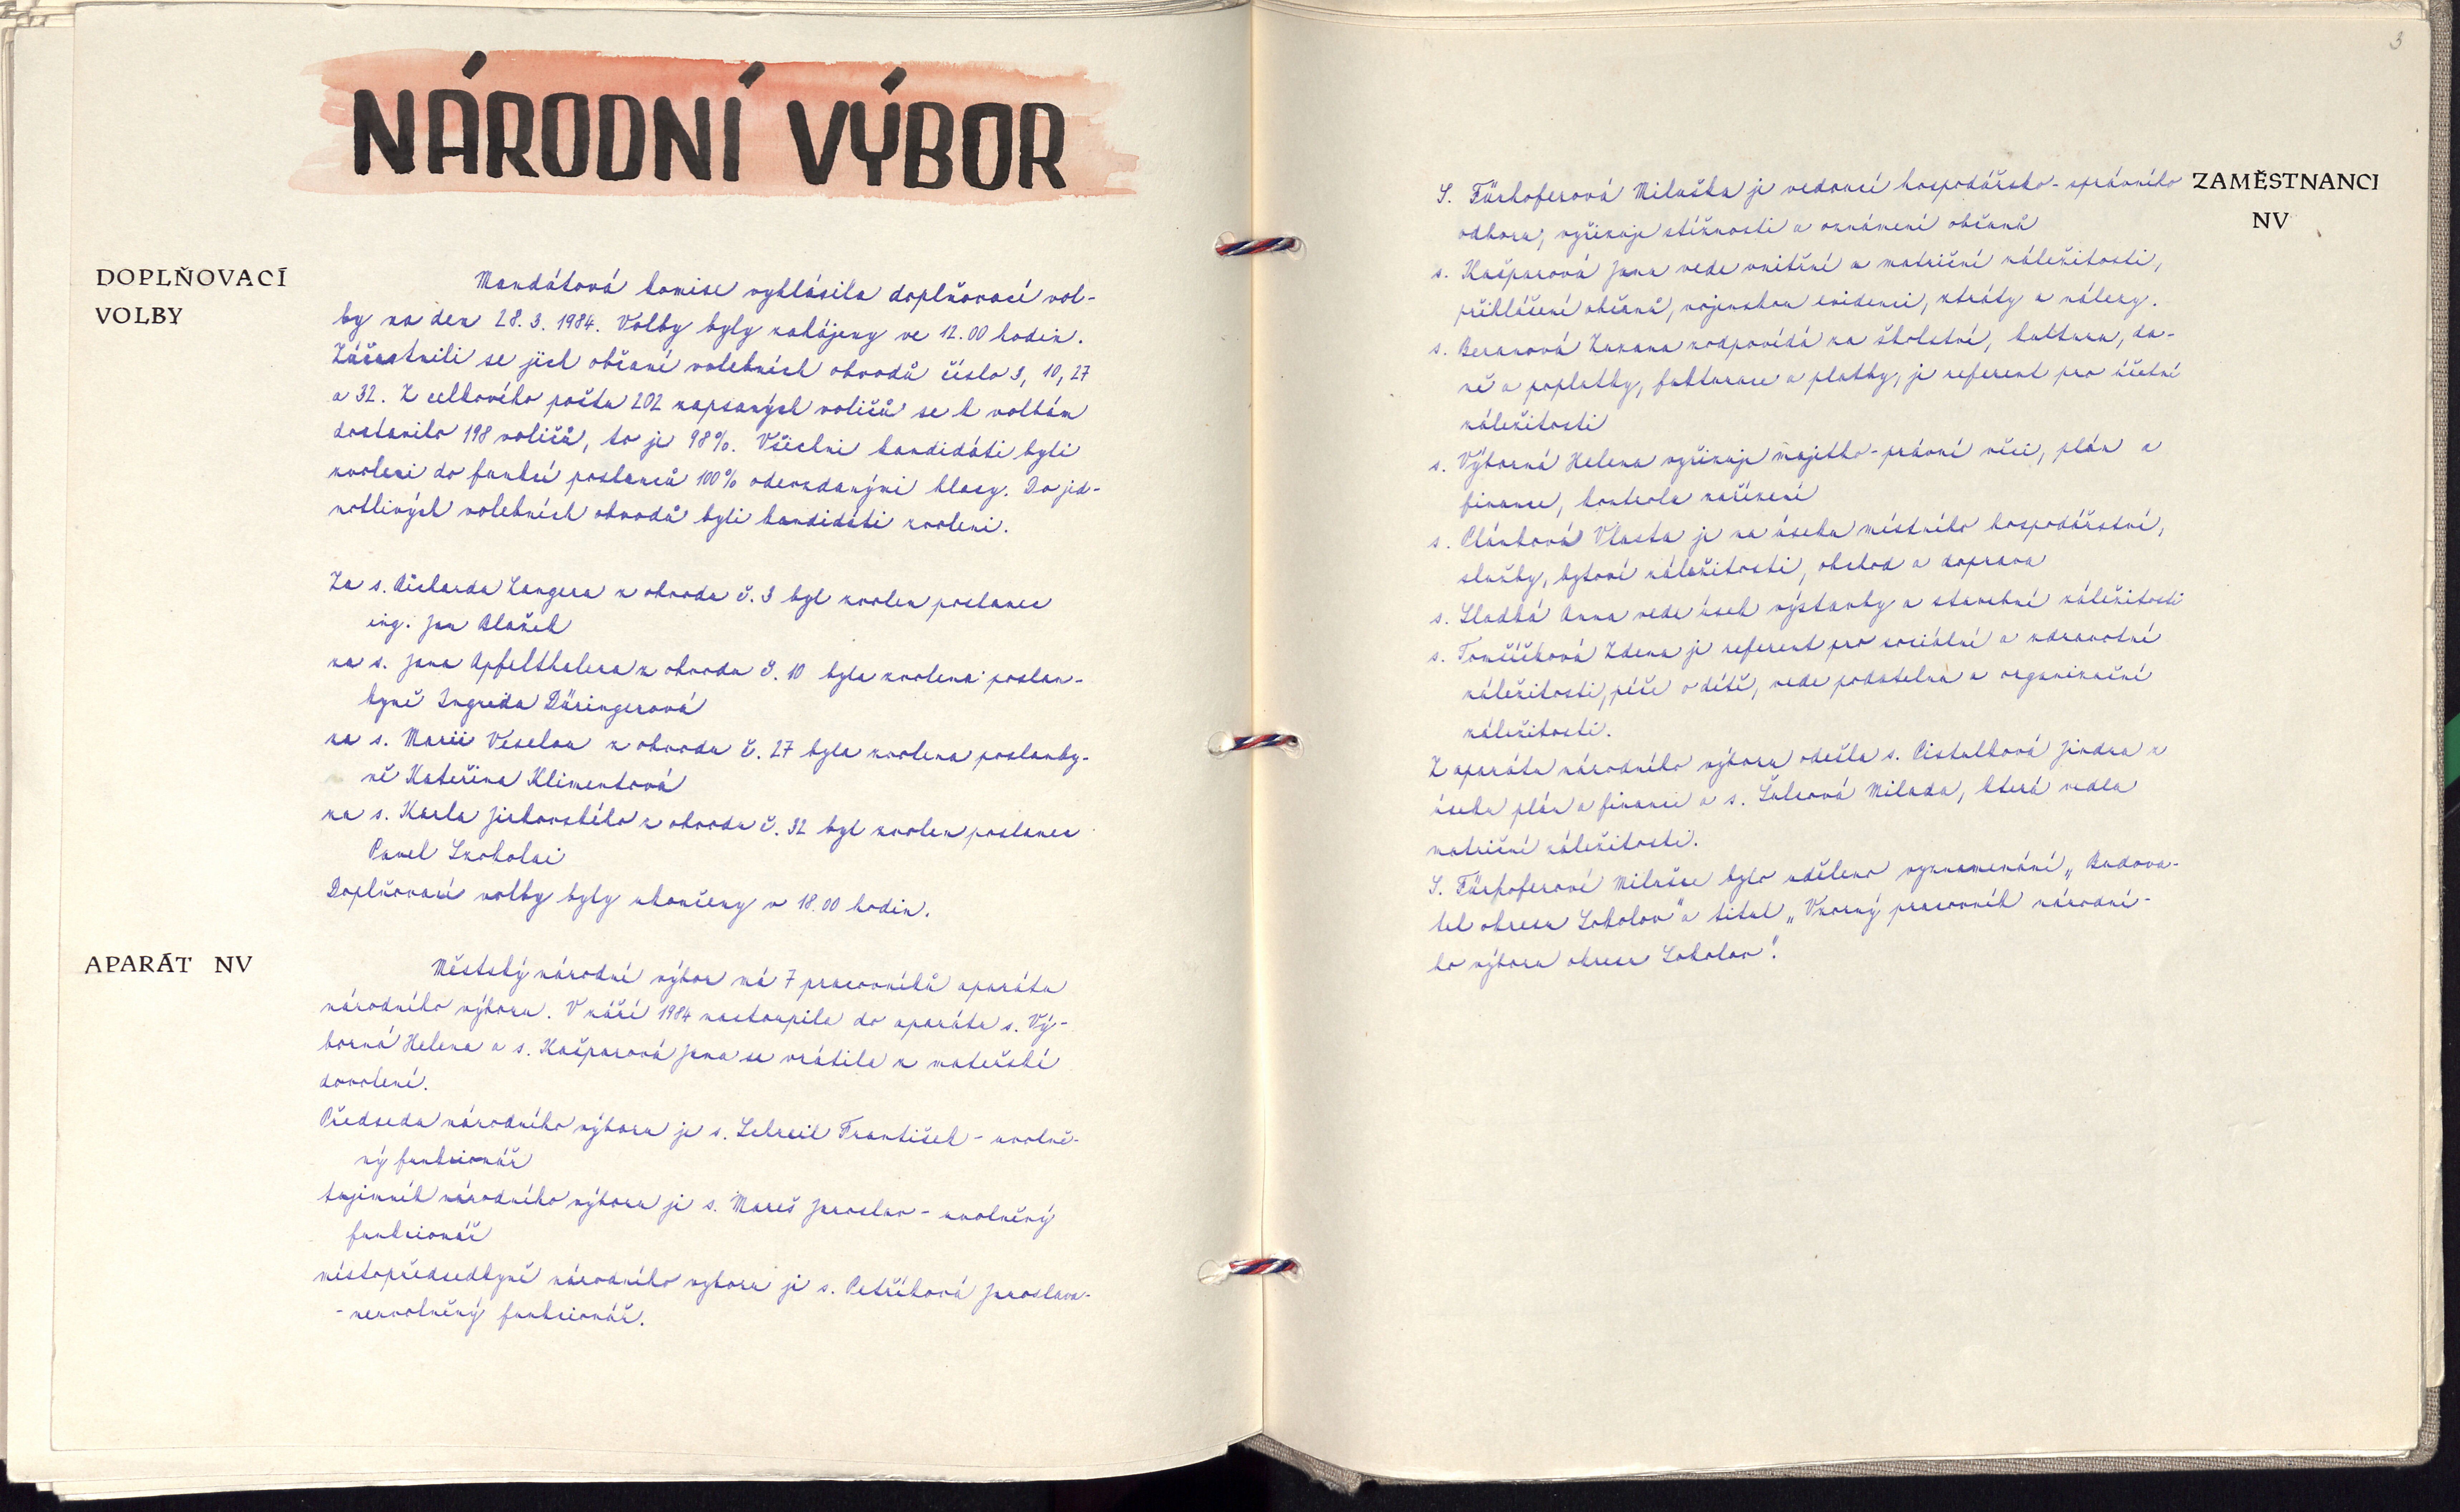 NÁRODNÍ VÝBOR
DOPLŇOVACÍ
VOLBY
Mandátová komise vyhlásila doplňovací vol-
by na den 28.3.1984. Volby byly zahájeny ve 12.00 hodin.
Zúčastnili se jich občané volebních obvodů číslo 3, 10, 27
a 32. Z celkového počtu 202 zapsaných voličů se k volbám
dostavilo 198 voličů, to je 98%. Všichni kandidáti byli
zvoleni do funkcí poslanců 100% odevzdanými hlasy. Do jed-
notlivých volebních obvodů byli kandidáti zvoleni.
Za s. Richarda Langera z obvodu č. 3 byl zvolen poslanec
ing. Jan Blažek
za s. Jana Apfelthalera z obvodu č. 10 byla zvolena poslan-
kyně Ingreda Däringerová
za s. Marii Veselou z obvodu č. 27 byla zvolena poslanky-
ně Kateřina Klimentová
za s. Karla Jirkovského z obvodu č. 32 byl zvolen poslanec
Pavel Szokolai
Doplňovací volby byly ukončeny v 18.00 hodin.
APARÁT NV
Městský národní výbor má 7 pracovníků aparátu
národního výboru. V září 1984 nastoupila do aparátu s. Vý-
borná Helena a s. Kašparová Jana se vrátila z mateřské
dovolené.
Předseda národního výboru je s. Schreil František - uvolně-
ný funkcionář
tajemník národního výboru je s. Mareš Jaroslav - uvolněný
funkcionář
místopředsedkyně národního výboru je s. Petříková Jaroslava-
- neuvolněný funkcionář.
3
ZAMĚSTNANCI
NV
S. Fürhoferová Miluška je vedoucí hospodářsko-správního
odboru, vyřizuje stížnosti a oznámení občanů
s. Kašparová Jana vede vnitřní a matriční náležitosti,
přihlášení občanů, vojenskou evidenci, ztráty a nálezy.
s. Beranová Zuzana zodpovídá za školství, kulturu, da-
ně a poplatky, fakturace a platby, je referent pro účetní
náležitosti
s. Výborná Helena vyřizuje majetko-právní věci, plán a
finance, kontrola zařízení
s. Plánková Vlasta je na úseku místního hospodářství,
služby, bytové náležitosti, obchod a doprava
s. Sladká Anna vede úsek výstavby a stavební náležitosti
s. Tomčíková Zdena je referent pro sociální a zdravotní
náležitosti, péče o dítě, vede podatelnu a organizační
náležitosti.
Z aparátu národního výboru odešla s. Cistulková Jindra z
úseku plán a finance a s. Šulcová Milada, která vedla
matriční náležitosti.
S. Fürhoferové Milušce bylo uděleno vyznamenání „Budova-
tel okresu Sokolov" a titul „Vzorný pracovník národní-
ho výboru okresu Sokolov".